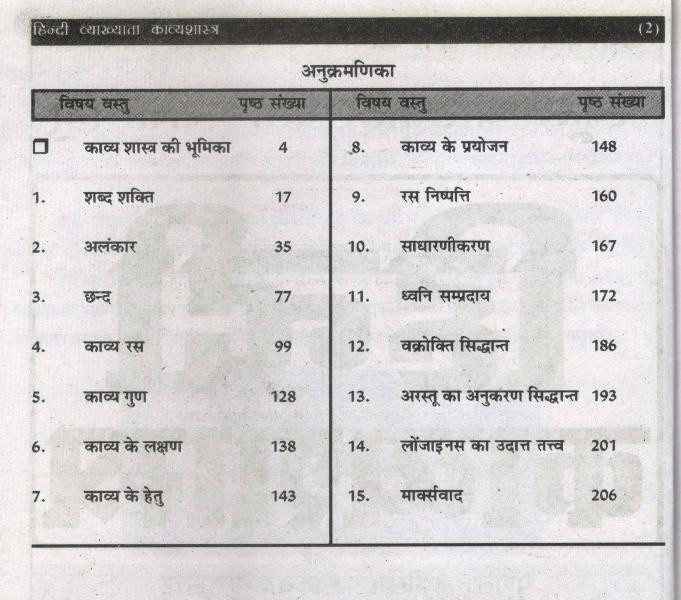 हिन्दी व्याख्याता काव्यशास्त्र (2)
अनुक्रमणिका
विषय वस्तु पृष्ठ संख्या विषय वस्तु पृष्ठ संख्या
❒ काव्य शास्त्र की भूमिका 4
1. शब्द शक्ति 17
2. अलंकार 35
3. छन्द 77
4. काव्य रस 99
5. काव्य गुण 128
6. काव्य के लक्षण 138
7. काव्य के हेतु 143
8. काव्य के प्रयोजन 148
9. रस निष्पत्ति 160
10. साधारणीकरण 167
11. ध्वनि सम्प्रदाय 172
12. वक्रोक्ति सिद्धान्त 186
13. अरस्तू का अनुकरण सिद्धान्त 193
14. लोंजाइनस का उदात्त तत्त्व 201
15. मार्क्सवाद 206